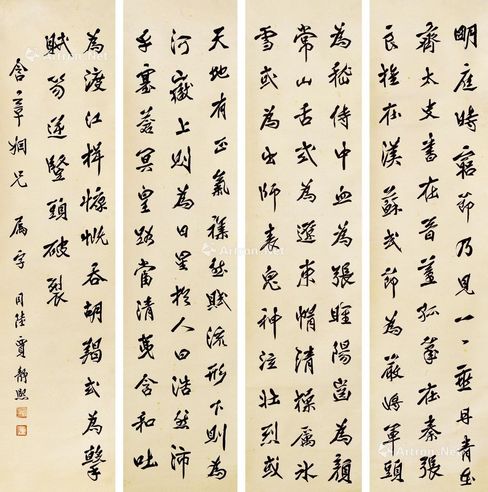 明庭時窮節乃見一一垂丹青在
齊太史書在晉董狐筆在秦張
良椎在漢蘇武節為嚴將軍頭
為嵇侍中血為張睢陽齒為顏
常山舌或為遼東帽清操厲冰
雪或為出師表鬼神泣壯烈或
天地有正氣雜然賦流形下則為
河嶽上則為日星於人曰浩然沛
乎塞蒼冥皇路當清夷含和吐
為渡江楫慷慨吞胡羯或為擊
賊笏逆豎頭破裂
含章姻兄 屬字